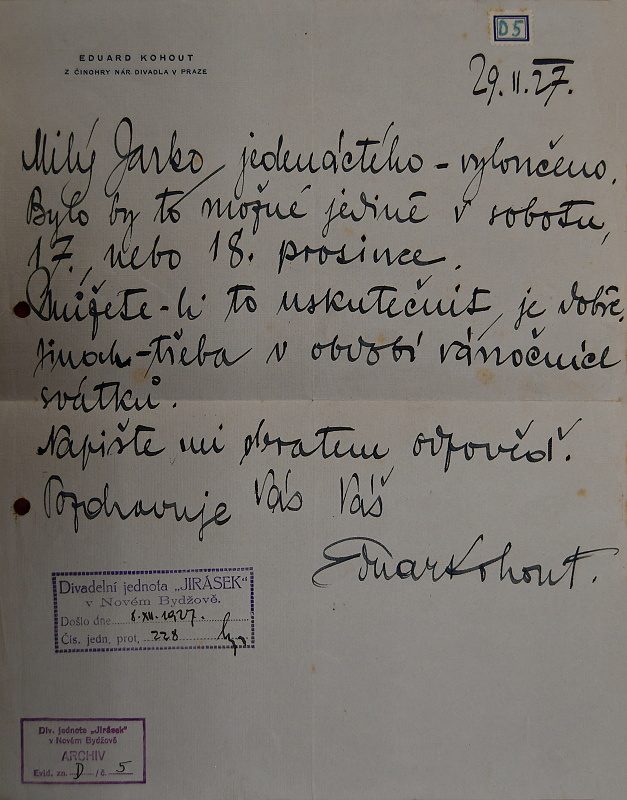 D5
EDUARD KOHOUT
Z ČINOHRY NÁR. DIVADLA V PRAZE
29. 11. 27.
Milý Jarko, jedenáctého – vyloučeno.
Bylo by to možné jedině v sobotu,
17., nebo 18. prosince.
Můžete-li to uskutečnit, je dobře,
jinak – třeba v období vánočních
svátků.
Napište mi obratem odpověď.
Pozdravuje Vás Váš
Eduard Kohout.
Divadelní jednota „JIRÁSEK"
v Novém Bydžově.
Došlo dne 6. XII. 1927.
Čís. jedn. prot. 228
Div. jednota „Jirásek"
v Novém Bydžově
ARCHIV
Evid. zn. D / č. 5